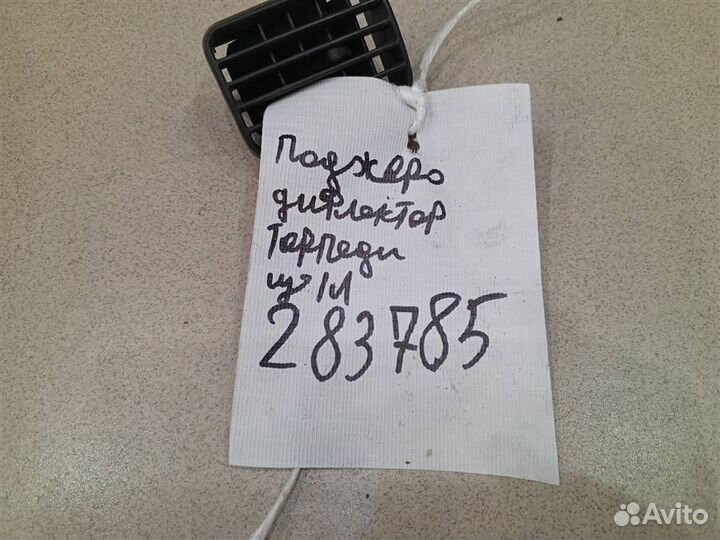 Поджеро
дифлектор
Торпеды
283785
Avito